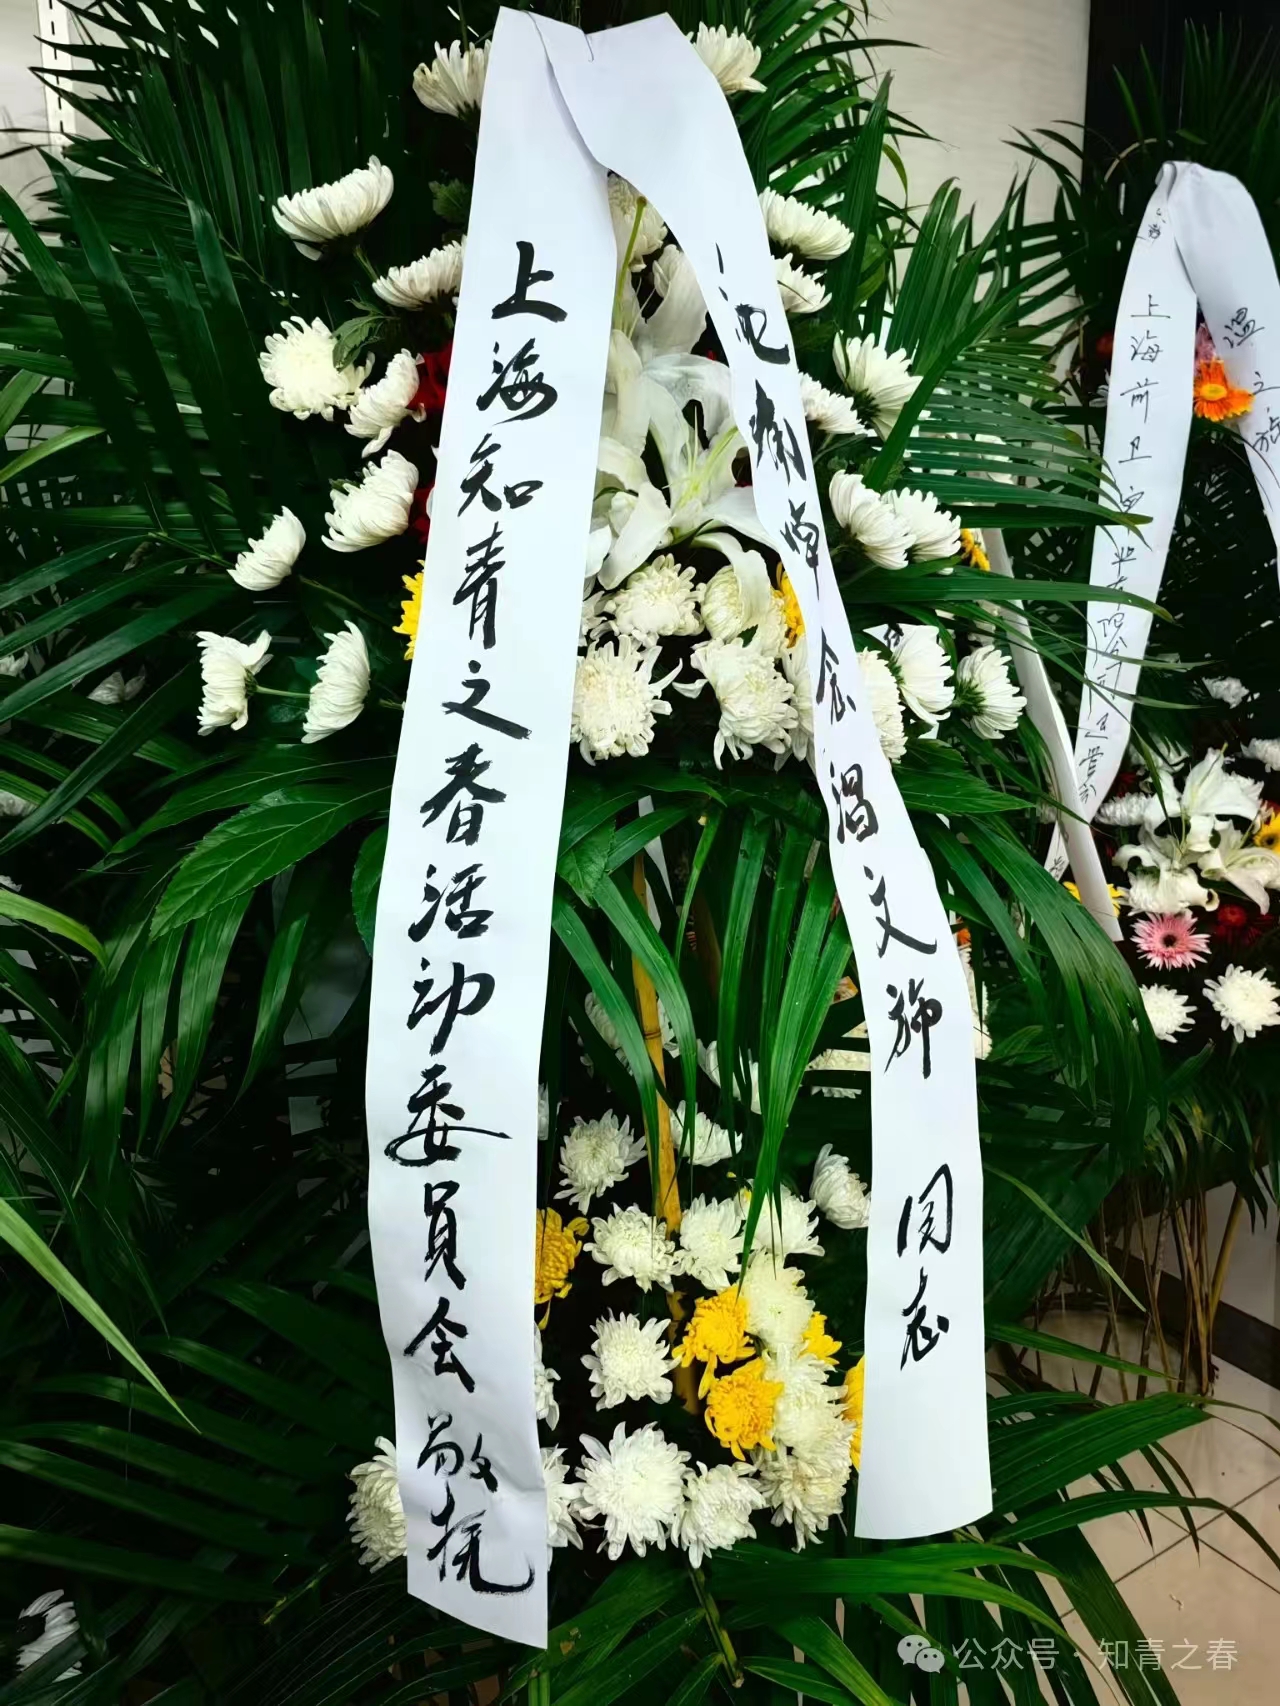 沉痛悼念温文旆 同志
上海知青之春活动委员会 敬挽
温文旆
上海前卫 业有限公司
公众号 · 知青之春